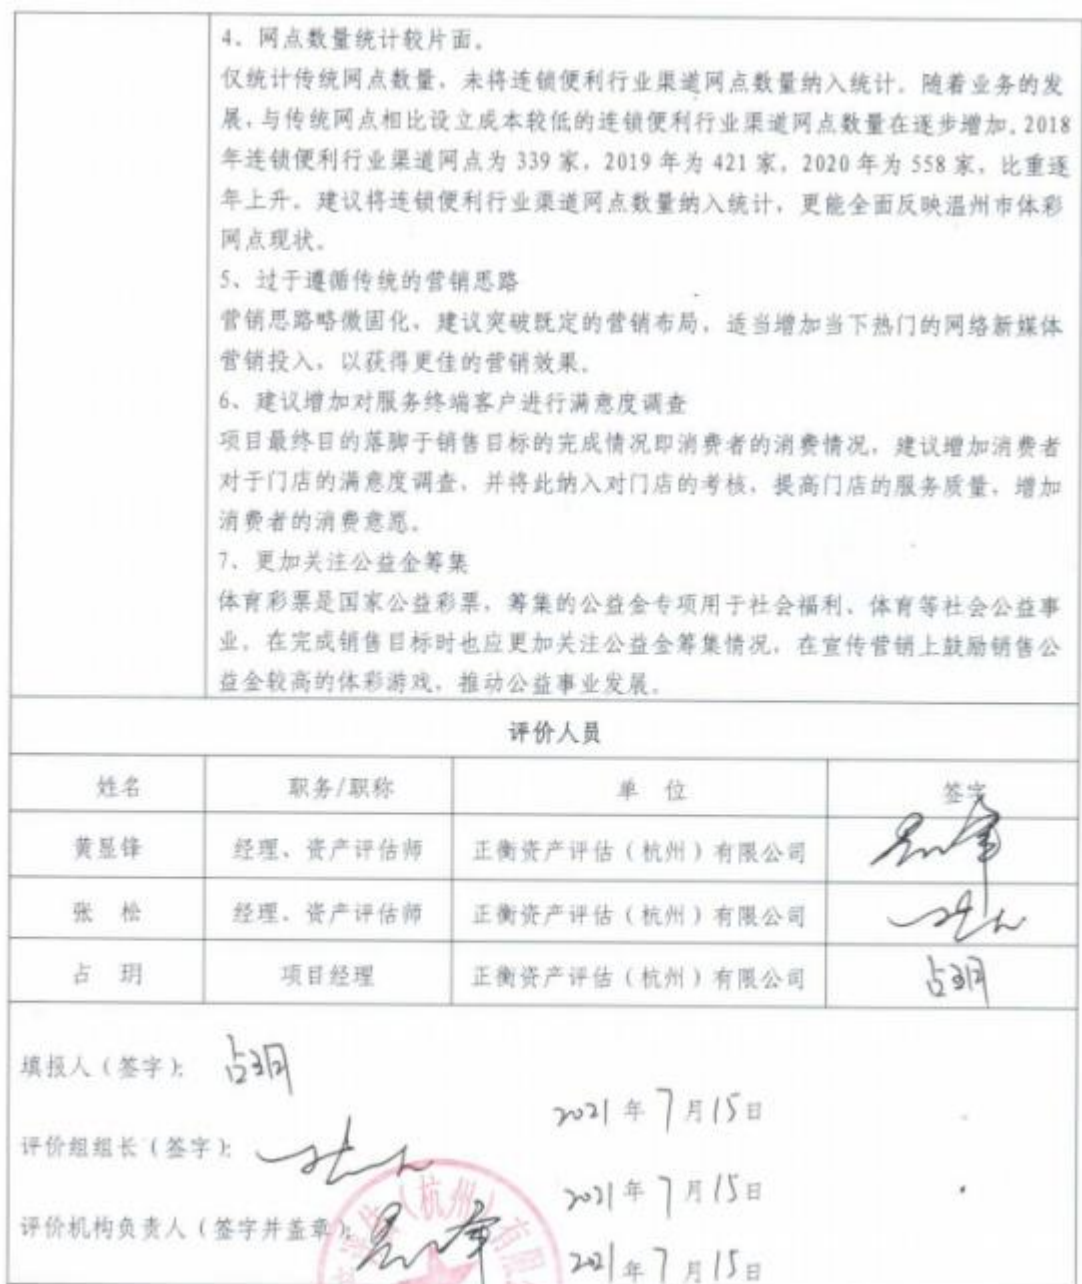 4、网点数量统计较片面。
仅统计传统网点数量，未将连锁便利行业渠道网点数量纳入统计。随着业务的发
展，与传统网点相比设立成本较低的连锁便利行业渠道网点数量在逐步增加，2018
年连锁便利行业渠道网点为 339 家，2019 年为 421 家，2020 年为 558 家，比重逐
年上升。建议将连锁便利行业渠道网点数量纳入统计，更能全面反映温州市体彩
网点现状。
5、过于遵循传统的营销思路
营销思路略微固化，建议突破既定的营销布局，适当增加当下热门的网络新媒体
营销投入，以获得更佳的营销效果。
6、建议增加对服务终端客户进行满意度调查
项目最终目的落脚于销售目标的完成情况即消费者的消费情况，建议增加消费者
对于门店的满意度调查，并将此纳入对门店的考核，提高门店的服务质量，增加
消费者的消费意愿。
7、更加关注公益金筹集
体育彩票是国家公益彩票，筹集的公益金专项用于社会福利、体育等社会公益事
业，在完成销售目标时也应更加关注公益金筹集情况，在宣传营销上鼓励销售公
益金较高的体彩游戏，推动公益事业发展。
评价人员
姓名 职务/职称 单 位 签字
黄显锋 经理、资产评估师 正衡资产评估（杭州）有限公司
张 松 经理、资产评估师 正衡资产评估（杭州）有限公司
占 玥 项目经理 正衡资产评估（杭州）有限公司 占玥
填报人（签字）： 占玥
2021 年 7 月 15 日
评价组组长（签字）：
2021 年 7 月 15 日
评价机构负责人（签字并盖章）：
2021 年 7 月 15 日
（杭州）有限